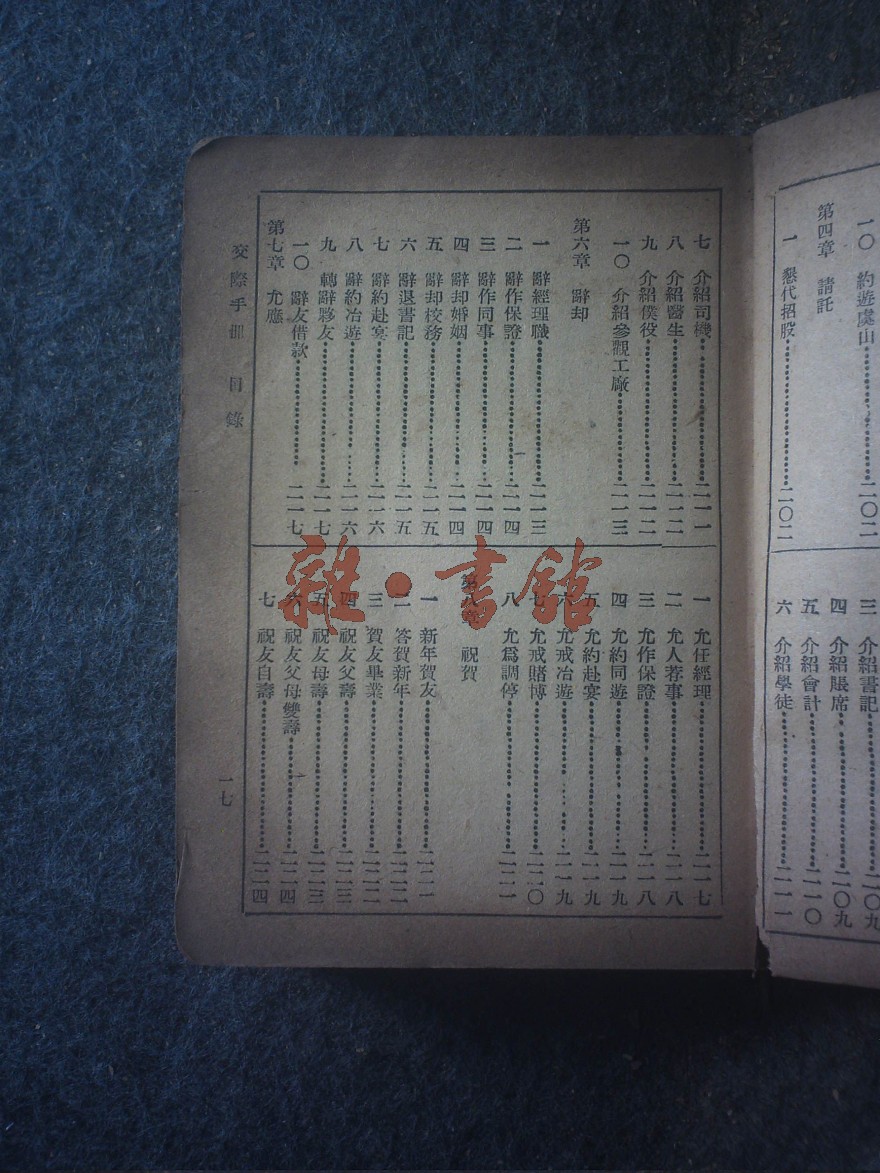 一〇　約遊虞山……二〇二
第四章　請託
一　懇代招股……二〇二
三　介紹書記……二〇九
四　介紹賬席……二〇九
五　介紹會計……二一〇
六　介紹學徒……二一一
七　介紹司機……二一一
八　介紹醫生……二一二
九　介紹僕役……二一二
一〇　介紹參觀工廠……二一三
第六章　辭却
一　辭經理職……二一三
二　辭作保證……二一四
三　辭作同事……二一四
四　辭却婚姻……二一四
五　辭却校務……二一五
六　辭退書記……二一五
七　辭約赴宴……二一六
八　辭約冶遊……二一六
九　轉辭夥友……二一七
一〇　辭友借款……二一七
第七章　允應
一　允任經理……二一七
二　允人荐事……二一八
三　允作保證……二一八
四　允約同遊……二一九
五　允約赴宴……二一九
六　允戒冶遊……二一九
七　允戒賭博……二二〇
八　允爲調停……二二一
第八章　祝賀
一　新年賀友……二二一
二　答賀新年……二二二
三　賀友畢業……二二二
四　祝友父壽……二二三
五　祝友母壽……二二三
六　祝友父母雙壽……二二四
七　祝友自壽……二二四
交際手册　目錄
一七
雜·書舘